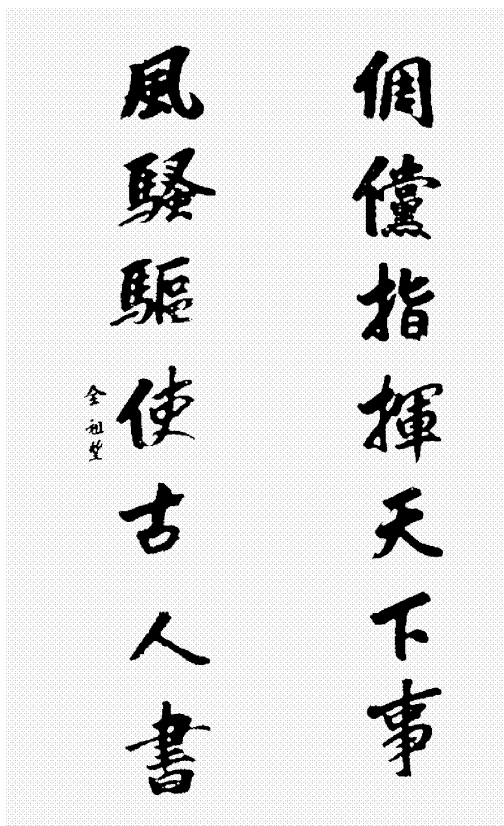 倜儻指揮天下事
風騷驅使古人書
金祖塋